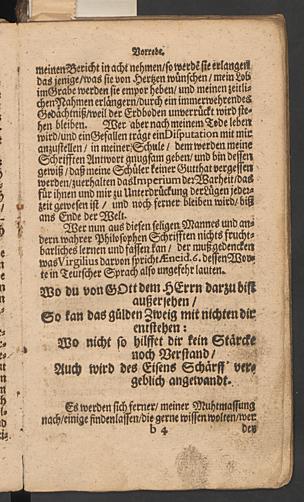 Vorrede.
meinen Bericht in acht nehmen/so werdē sie erlangen
das jenige/was sie von Hertzen wünschen/mein Lob
im Grabe werden sie empor heben/und meinen zeitli-
chen Nahmen erlängern/durch ein immerwehrendes
Gedächtniß/weil der Erdboden unverrückt wird ste-
hen bleiben. Wer aber nach meinem Tode leben
wird/und ein Gefallen träge ein Disputation mit mir
anzustellen/in meiner Schule/dem werden meine
Schrifften Antwort gnugsam geben/und bin dessen
gewiß/daß meine Schüler keiner Gutthat vergessen
werden/zu erhalten das Imperium der Warheit/das
für ihnen und mir zu Unterdrückung der Lügen jeder-
zeit gewesen ist/und noch ferner bleiben wird/biß
ans Ende der Welt.
Wer nun aus diesen seligen Mannes und an-
dern wahrer Philosophen Schrifften nichts frucht-
barliches lernen und fassen kan/der muß gedencken
was Virgilius darvon spricht Æneid. 6. dessen Wor-
te in Teutscher Sprach also ungefehr lauten.
Wo du von GOtt dem HErrn darzu bist
außersehen/
So kan das gülden Zweig mit nichten dir
entstehen:
Wo nicht so hilfft dir kein Stärcke
noch Verstand/
Auch wird des Eisens Schärff ver-
geblich angewandt.
Es werden sich ferner/meiner Muhtmassung
nach/einige finden lassen/die gerne wissen wolten/wer
b 4 der